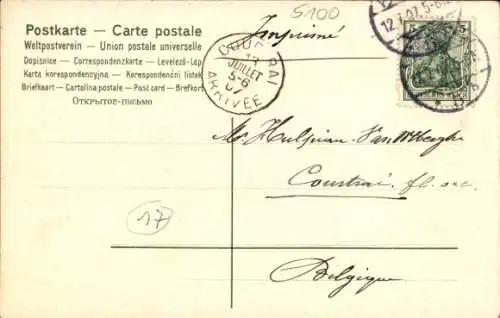 5100
Postkarte — Carte postale
Weltpostverein — Union postale universelle
Dopisnice — Correspondenzkarte — Levelező-Lap
Karta korespondencyjna — Korespondenční lístek
Briefkaart — Cartolina postale — Post card — Brefkort
Открытое-письмо
Imprimé
12.7.07. 5-6
COURTRAI
13
JUILLET
5-6
07
ARRIVÉE
5
Mr Hulpiau-
Courtrai fl. occ.
17
Belgique